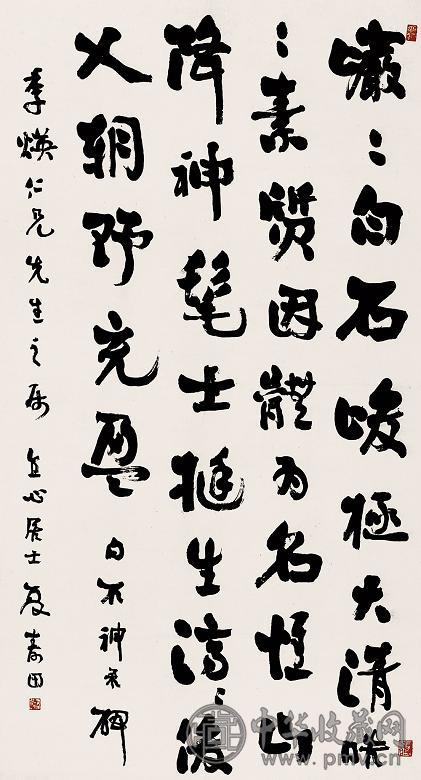 巖〻白石峻極大清皓
〻素質因體為名惟山
降神髦士挺生濟〻俊
乂朝野充盈 白石神君碑
季煐仁兄先生之屬 直心居士夏壽田
中华收藏网
www.pmv.cn